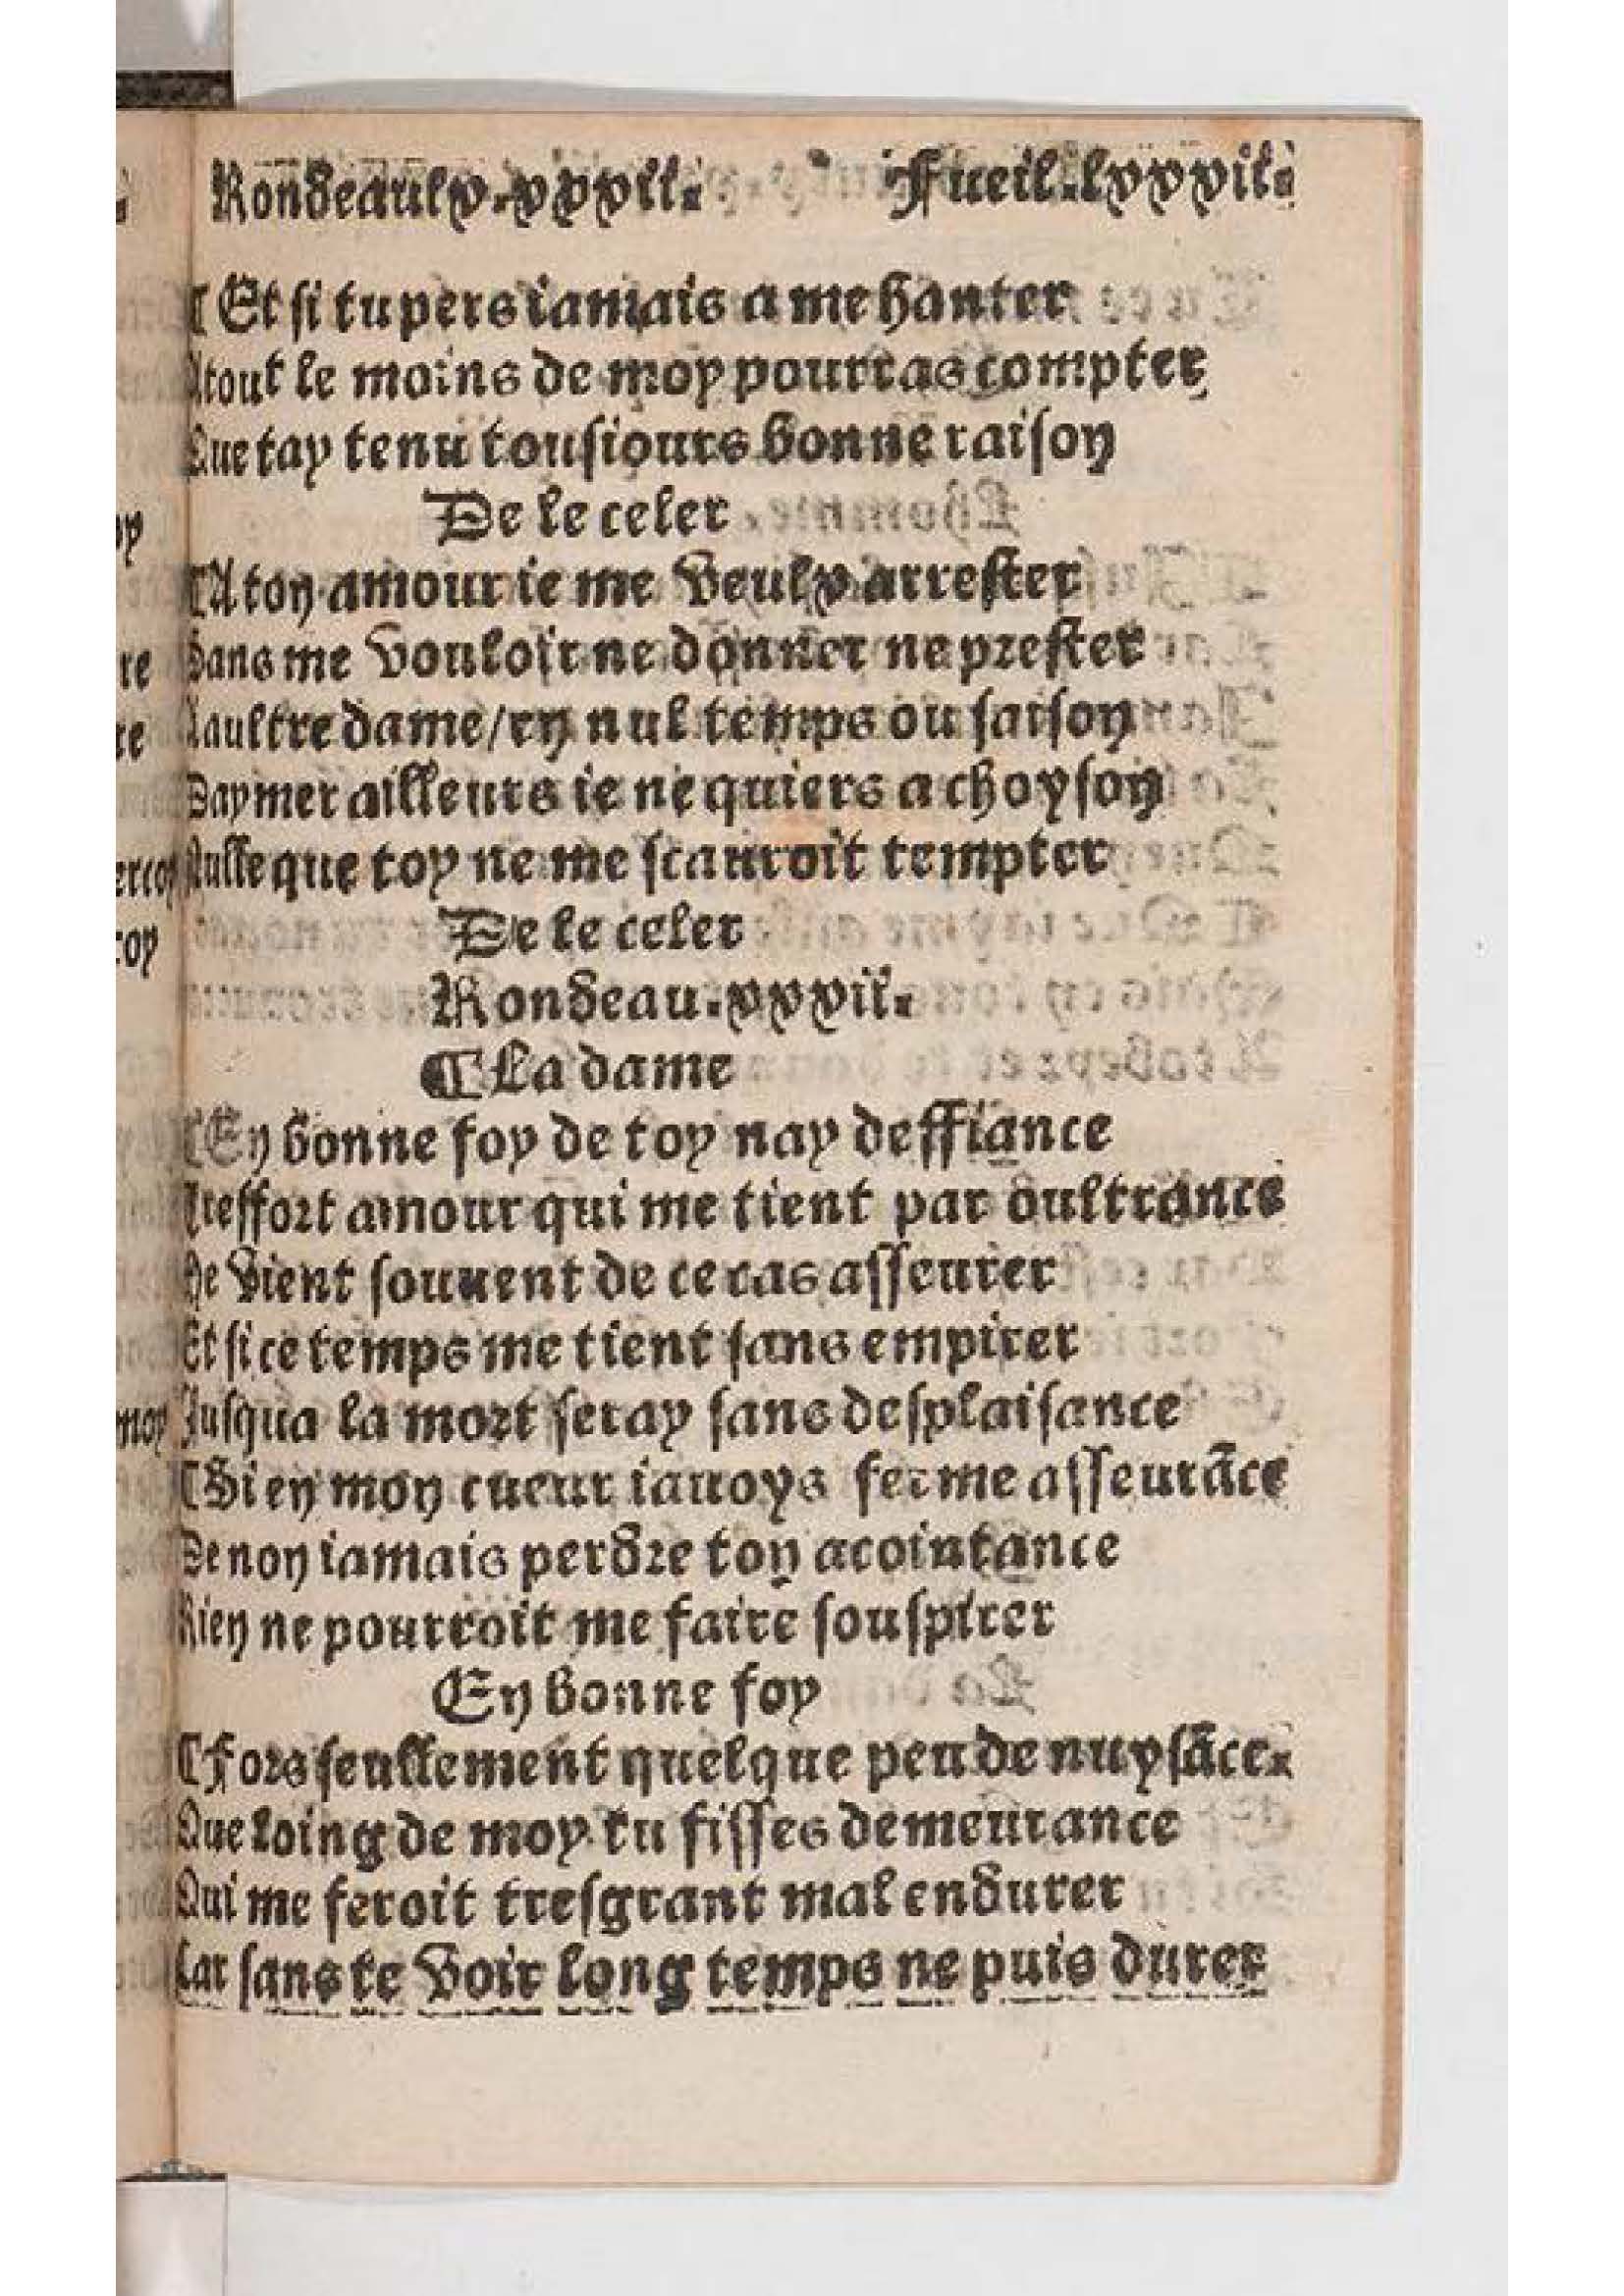 Rondeaulx.xxxvii. Fueil.lxxxvii.
¶ Et si tu pers iamais a me hanter
Atout le moins de moy pourras compter
Que tay tenu tousiours bonne raison
De le celer
¶ A ton amour ie me veulx arrester
Sans me vouloir ne donner ne prester
Aaultre dame/en nul temps ou saison
Daymer ailleurs ie ne quiers achoyson
Nulle que toy ne me scauroit tempter
De le celer
Rondeau.xxxvii.
¶ La dame
¶ En bonne foy de toy nay deffiance
Treffort amour qui me tient par oultrance
Me vient souuent de ce cas asseurer
Et si ce temps me tient sans empirer
Jusqua la mort seray sans desplaisance
¶ Si en mon cueur iauoys ferme asseurāce
De non iamais perdre ton acointance
Rien ne pourroit me faire souspirer
En bonne foy
¶ Fors seullement quelque peu de nuysāce.
Que loing de moy tu fisses demeurance
Qui me feroit tresgrant mal endurer
Car sans te voir long temps ne puis durer